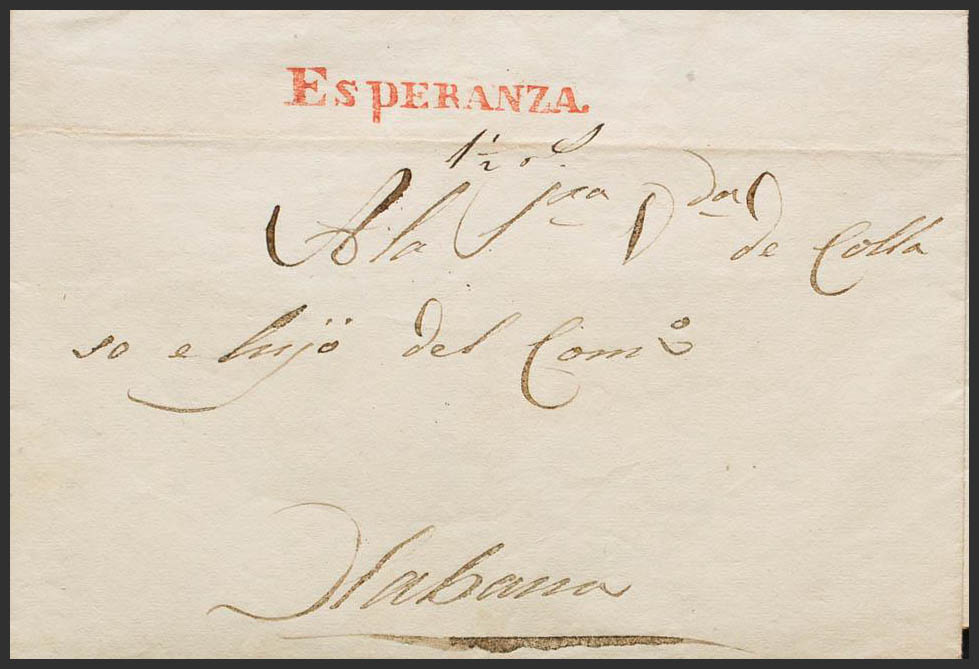 ESPERANZA.
1½ rs.
A la Sra V da de Colla
so e hijo del Como
Habana